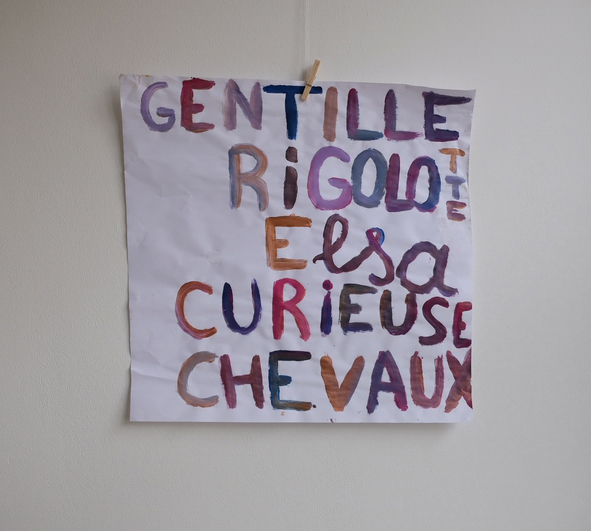 GENTILLE
RiGOLOTTE
Elsa
CURiEUSE
CHEVAUX